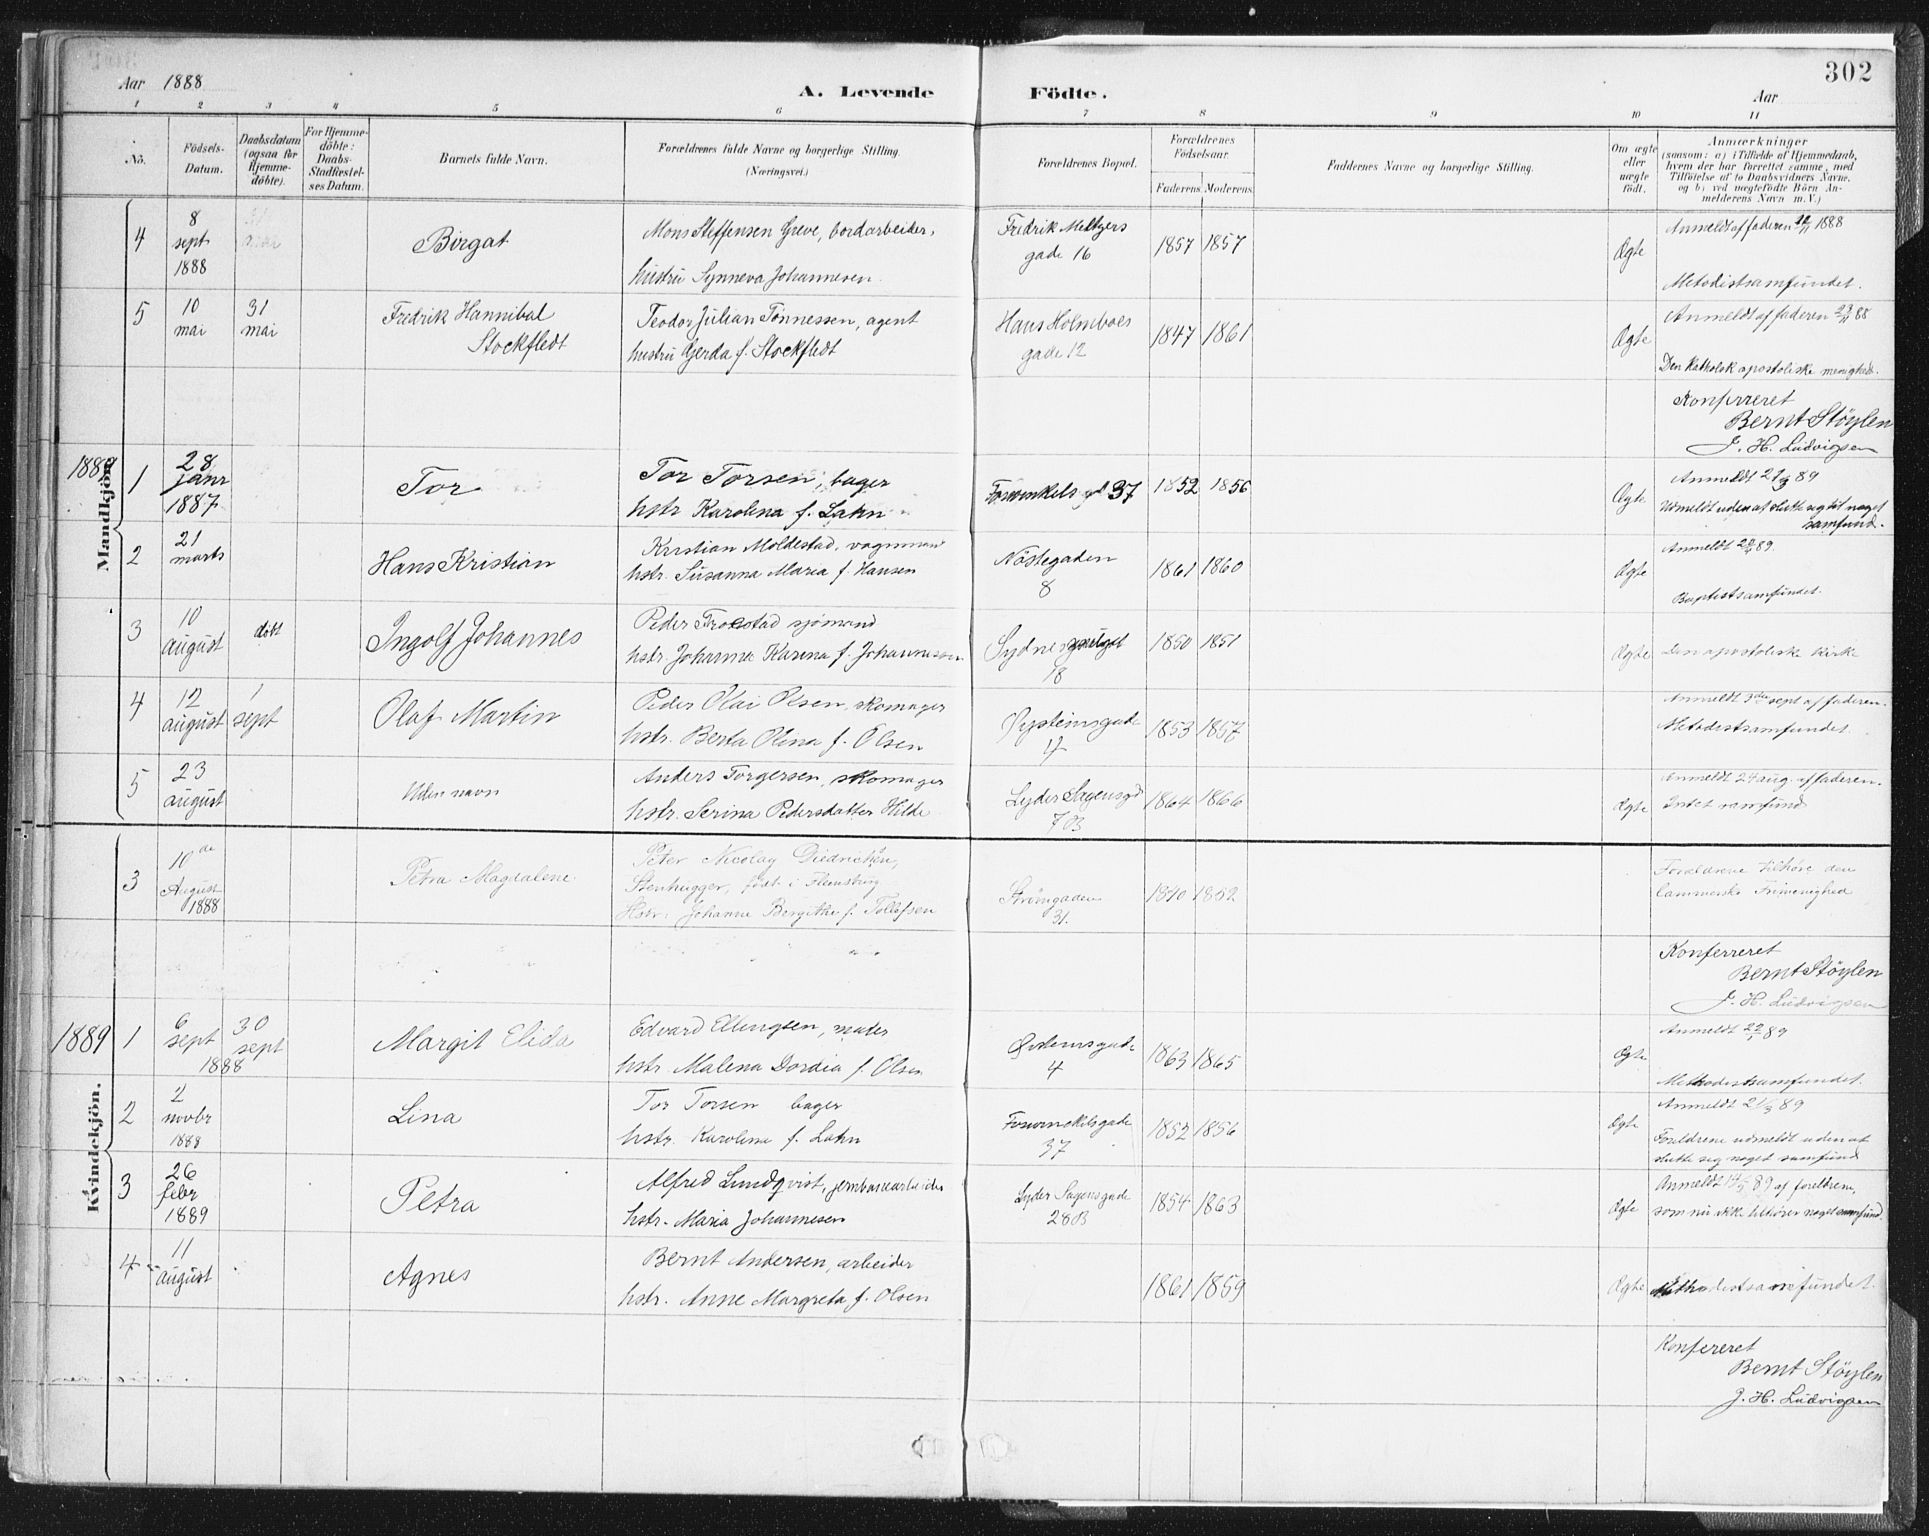 302
Aar 1888
A. Levende Födte.
Aar
1 2 3 4 5 6 7 8 9 10 11
No.
Födsels-Datum.
Daabsdatum (ogsaa for Hjemme-döbte).
For Hjemme-döbte: Daabs-Stadfæstel-ses Datum.
Barnets fulde Navn.
Forældrenes fulde Navne og borgerlige Stilling. (Næringsvei.)
Forældrenes Bopæl.
Forældrenes Födselsaar.
Faderens Moderens
Faddernes Navne og borgerlige Stilling.
Om ægte eller uægte födt.
Anmærkninger
(saasom: a) i Tilfælde af Hjemmedaab, hvem der har forrettet samme, med Tilföielse af to Daabsvidners Navne, og b) ved uægtefödte Börn An-melderens Navn m.V.)
4
8 sept 1888
Birgat
Mons Steffensen Greve, bordarbeider,
hustru Synneva Johannesen
Fredrik Meltzers gade 16
1857 1857
Ægte
Anmeldt af faderen 1888
Metodistsamfundet.
5
10 mai
31 mai
Fredrik Hannibal Stockfledt
Teodor Julian Tönnessen, agent
hustru Gjerda f. Stockfledt
Hans Holmboes gade 12
1847 1861
Ægte
Anmeldt af faderen 23/11 88
Den katholsk apostoliske menighed.
Konferreret
Bernt Stöylen
J. H. Ludvigsen
Mandkjön.
1
28 janr 1887
Tor
Tor Torsen, bager
hstr Karolina f. Lahn
37
1852 1856
Ægte
Anmeldt 21/3 89
Udmeldt uden at slutte sig til noget samfund.
2
21 marts
Hans Kristian
Kristian Moldestad, vognmand
hstr. Susanna Maria f. Hansen
Nöstegaden 8
1861 1860
Ægte
Anmeldt 89.
Baptistsamfundet.
3
10 august
döbt
Ingolf Johannes
Peder sjömand
hstr. Johanna Karina f. Johannesen
18
1850 1851
Ægte
Den apostoliske kirke
4
12 august
1 sept
Olaf Martin
Peder Olai Olsen, skomager
hstr. Berta Olina f. Olsen
Øysteinsgade 4
1853 1857
Anmeldt 3die sept af faderen.
Metodistsamfundet.
5
23 august
Uden navn
Anders Torgersen, skomager
hstr. Serina Pedersdatter Hilde
Lyder Sagensgd 7B
1864 1866
Ægte
Anmeldt 24 aug. af faderen.
Intet samfund
3
10de August 1888
Petra Magdalene
Peter Nicolay Diedrichsen,
Stenhugger, födt i Flensburg
Hstr: Johanne Bergithe f. Tollefsen
Strömgaden 31.
1840 1852
Forældrene tilhöre den
Lammerske Frimenighed
Konferreret
Bernt Stöylen
J. H. Ludvigsen
1889
Kvindekjön.
1
6 sept 1888
30 sept
Margit Elida
Edvard Ellingsen, maler
hstr. Malena Dordia f. Olsen
4
1863 1865
Ægte
Anmeldt 89
Methodistsamfundet.
2
2 novbr 1888
Lina
Tor Torsen bager
hstr. Karolina f. Lahn
37
1852 1856
Ægte
Anmeldt 21/3 89
Foreldrene udmeldt uden at
slutte sig noget samfund
3
26 febr 1889
Petra
Alfred Lundqvist, jernbanearbeider
hstr. Maria Johannesen
Lyder Sagensgade 28B
1854 1863
Ægte
Anmeldt 89 af foreldrene,
som nu ikke tilhörer noget samfund.
4
11 august
Agnes
Bernt Andersen, arbeider
hstr. Anne Margreta f. Olsen
1861 1859
Ægte
Methodistsamfundet.
Konfereret
Bernt Stöylen
J. H. Ludvigsen